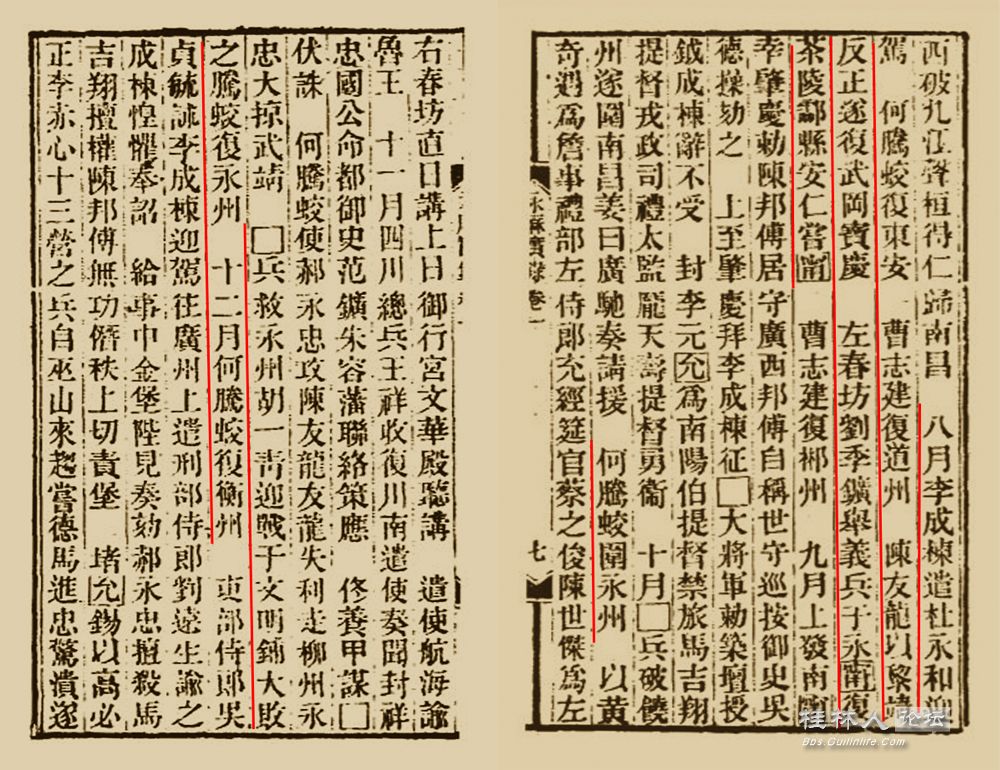 西破九江聲桓得仁歸南昌　八月李成棟遣杜永和迎
駕　何騰蛟復東安　曹志建復道州　陳友龍以黎靖
反正遂復武岡寶慶　左春坊劉季鑛舉義兵于永甯復
茶陵酃縣安仁嘗甯　曹志建復郴州　九月上發南甯
幸肇慶勅陳邦傅居守廣西邦傅自稱世守巡按御史吳
德操劾之　上至肇慶拜李成棟征□大將軍勅築壇授
鉞成棟辭不受　封李元允爲南陽伯提督禁旅馬吉翔
提督戎政司禮太監龐天壽提督勇衞　十月□兵破饒
州遂圍南昌姜曰廣馳奏請援　何騰蛟圍永州　以黃
奇遇爲詹事禮部左侍郎充經筵官蔡之俊陳世傑爲左
永厤實錄卷一　七
右春坊直日講上日御行宮文華殿聽講　遣使航海諭
魯王　十一月四川總兵王祥收復川南遣使奏聞封祥
忠國公命都御史范鑛朱容藩聯絡策應　佟養甲謀□
伏誅　何騰蛟使郝永忠攻陳友龍友龍失利走柳州永
忠大掠武靖　□兵救永州胡一青迎戰于文明鋪大敗
之騰蛟復永州　十二月何騰蛟復衡州　吏部侍郎吳
貞毓詠李成棟迎駕往廣州上遣刑部侍郎劉遠生諭之
成棟惶懼奉詔　給事中金堡陛見奏劾郝永忠擅殺馬
吉翔擅權陳邦傅無功僭秩上切責堡　堵允錫以高必
正李赤心十三營之兵自巫山來趨嘗德馬進忠驚潰遂
桂林人论坛
Bbs.Guilinlife.Com